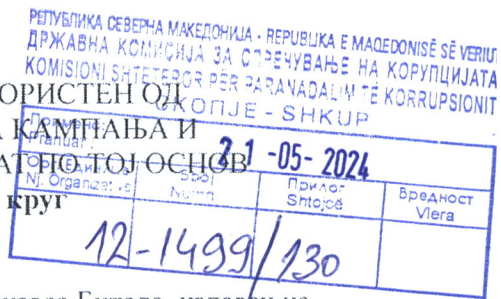 РЕПУБЛИКА СЕВЕРНА МАКЕДОНИЈА - REPUBLIKA E MAQEDONISË SË VERIUT
ДРЖАВНА КОМИСИЈА ЗА СПРЕЧУВАЊЕ НА КОРУПЦИЈАТА
KOMISIONI SHTETËROR PËR PARANDALIM TË KORRUPSIONIT
СКОПЈЕ - SHKUP
ОРИСТЕН ОД
КАМПАЊА И
АТ ПО ТОЈ ОСНОВ
круг
21-05-2024
Nj. Organizative
Број
Numri
Прилог
Shtojcë
Вредност
Vlera
12-1499/130